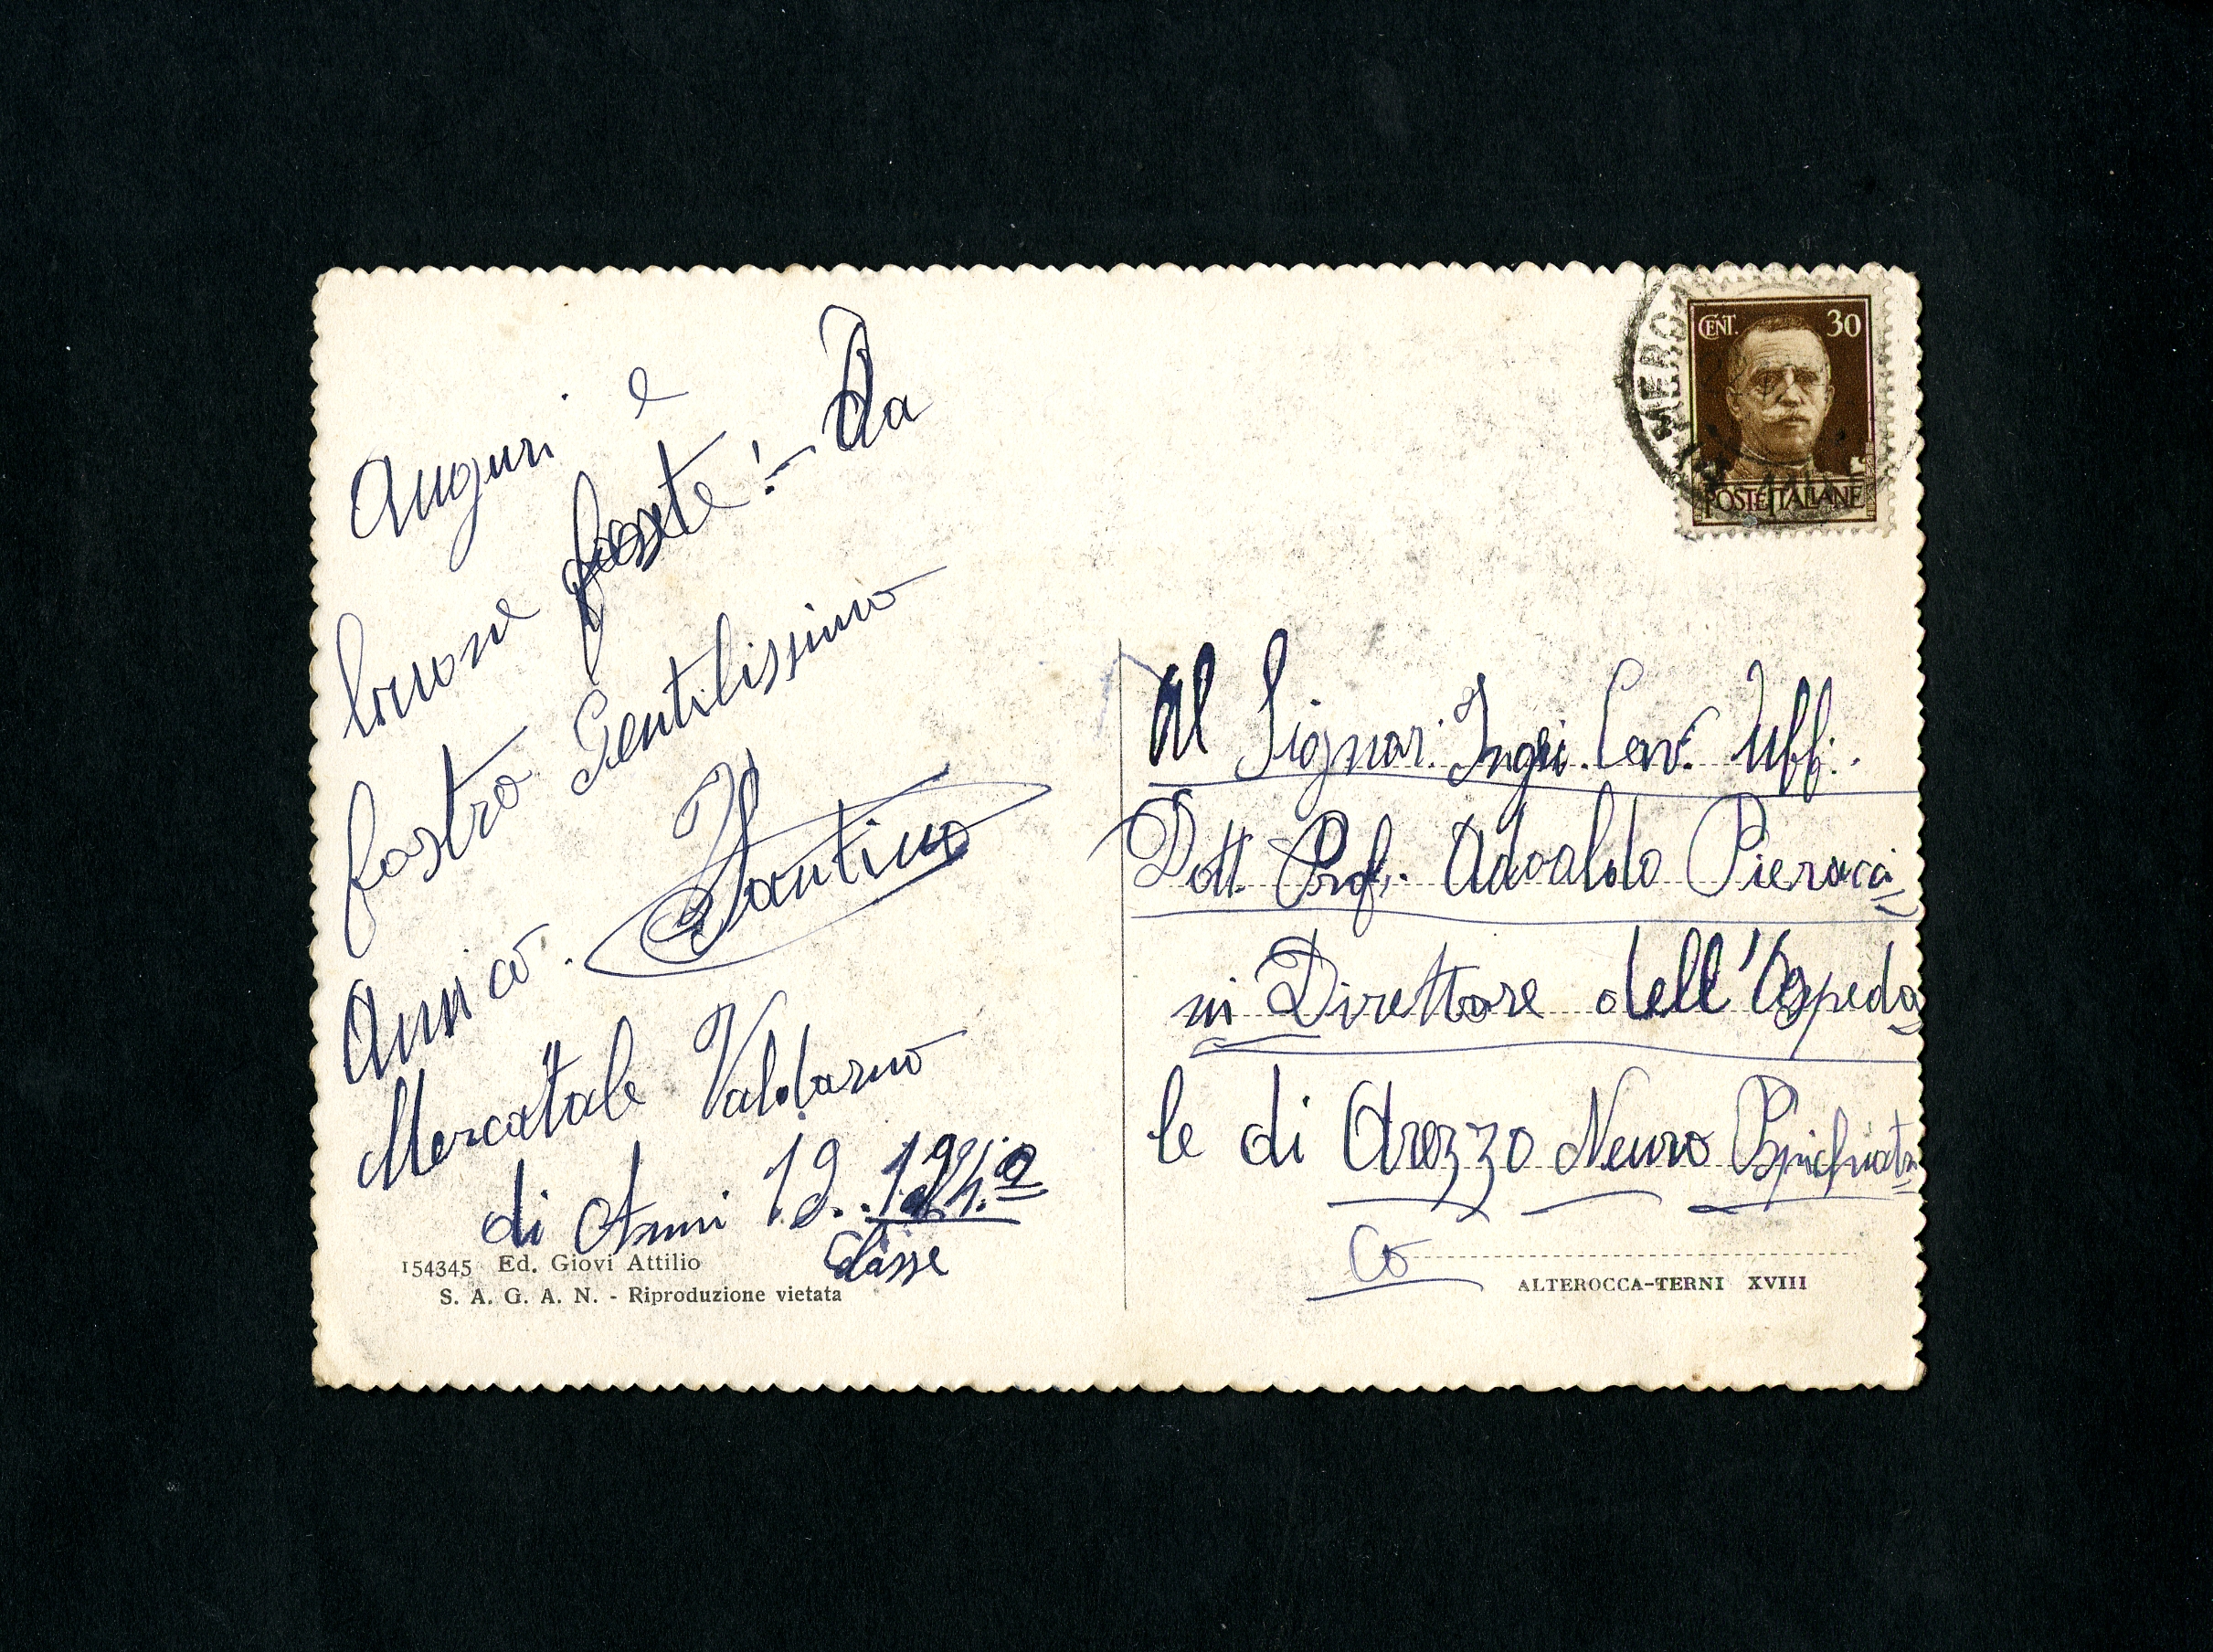 Auguri e
buone foste! - Da
fostro Gentilissimo
Amico. Santino
Mercatale Valdarno
di Anni 19..
Classe
154345 Ed. Giovi Attilio
S. A. G. A. N. - Riproduzione vietata
CENT. 30
POSTE ITALIANE
MERCA
Al Signor. Ingi. Cav. Uffi.
Dott. Prof. Adoaldo Pieracci
ni Direttore dell'Ospeda
le di Arezzo Neuro
Co
ALTEROCCA-TERNI XVIII